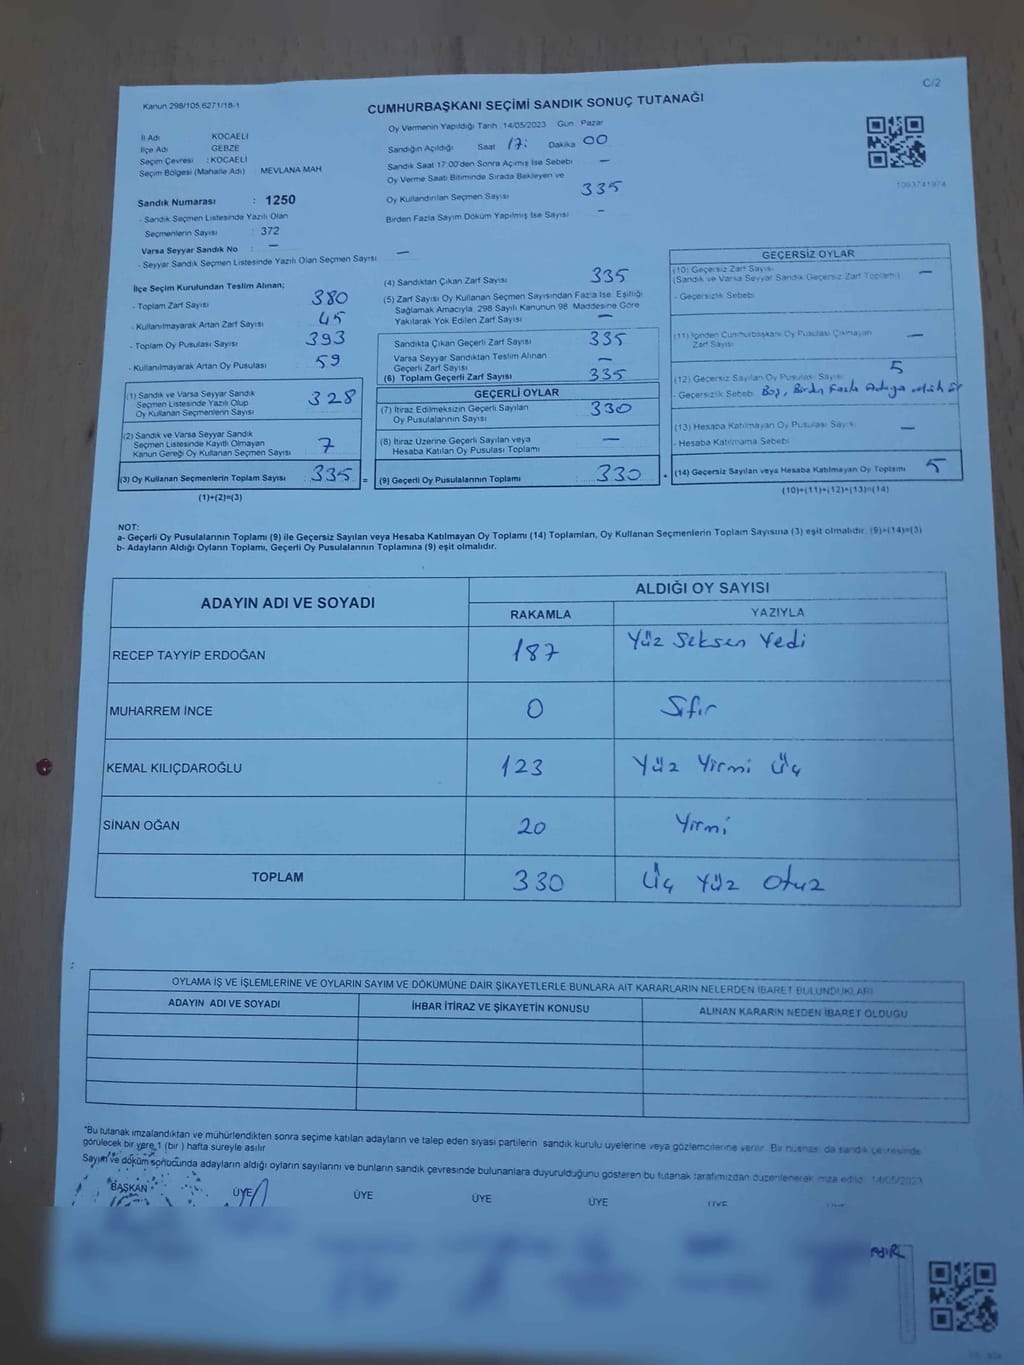 C/2
Kanun 298/105 6271/18-1
CUMHURBAŞKANI SEÇİMİ SANDIK SONUÇ TUTANAĞI
İl Adı KOCAELİ
İlçe Adı GEBZE
Seçim Çevresi : KOCAELİ
Seçim Bölgesi (Mahalle Adı) MEVLANA MAH
Sandık Numarası : 1250
- Sandık Seçmen Listesinde Yazılı Olan
Seçmenlerin Sayısı : 372
Varsa Seyyar Sandık No : —
- Seyyar Sandık Seçmen Listesinde Yazılı Olan Seçmen Sayısı —
Oy Vermenin Yapıldığı Tarih 14/05/2023 Gün Pazar
Sandığın Açıldığı Saat 17: Dakika 00
Sandık Saat 17:00'den Sonra Açımış İse Sebebi —
Oy Verme Saati Bitiminde Sırada Bekleyen ve
Oy Kullandırılan Seçmen Sayısı 335
Birden Fazla Sayım Döküm Yapılmış İse Sayısı —
1093741974
İlçe Seçim Kurulundan Teslim Alınan;
- Toplam Zarf Sayısı 380
- Kullanılmayarak Artan Zarf Sayısı 45
- Toplam Oy Pusulası Sayısı 393
- Kullanılmayarak Artan Oy Pusulası 59
(1) Sandık ve Varsa Seyyar Sandık
Seçmen Listesinde Yazılı Olup
Oy Kullanan Seçmenlerin Sayısı 328
(2) Sandık ve Varsa Seyyar Sandık
Seçmen Listesinde Kayıtlı Olmayan
Kanun Gereği Oy Kullanan Seçmen Sayısı 7
(3) Oy Kullanan Seçmenlerin Toplam Sayısı 335 =
(1)+(2)=(3)
(4) Sandıktan Çıkan Zarf Sayısı 335
(5) Zarf Sayısı Oy Kullanan Seçmen Sayısından Fazla İse, Eşitliği
Sağlamak Amacıyla, 298 Sayılı Kanunun 98. Maddesine Göre
Yakılarak Yok Edilen Zarf Sayısı —
Sandıkta Çıkan Geçerli Zarf Sayısı 335
Varsa Seyyar Sandıktan Teslim Alınan
Geçerli Zarf Sayısı —
(6) Toplam Geçerli Zarf Sayısı 335
GEÇERLİ OYLAR
(7) İtiraz Edilmeksizin Geçerli Sayılan
Oy Pusulalarının Sayısı 330
(8) İtiraz Üzerine Geçerli Sayılan veya
Hesaba Katılan Oy Pusulası Toplamı —
(9) Geçerli Oy Pusulalarının Toplamı 330 +
GEÇERSİZ OYLAR
(10) Geçersiz Zarf Sayısı
(Sandık ve Varsa Seyyar Sandık Geçersiz Zarf Toplamı) —
- Geçersizlik Sebebi
(11) İçinden Cumhurbaşkanı Oy Pusulası Çıkmayan
Zarf Sayısı —
(12) Geçersiz Sayılan Oy Pusulası Sayısı 5
- Geçersizlik Sebebi Boş, Birden Fazla Adaya
(13) Hesaba Katılmayan Oy Pusulası Sayısı —
- Hesaba Katılmama Sebebi
(14) Geçersiz Sayılan veya Hesaba Katılmayan Oy Toplamı 5
(10)+(11)+(12)+(13)=(14)
NOT:
a- Geçerli Oy Pusulalarının Toplamı (9) ile Geçersiz Sayılan veya Hesaba Katılmayan Oy Toplamı (14) Toplamları, Oy Kullanan Seçmenlerin Toplam Sayısına (3) eşit olmalıdır. (9)+(14)=(3)
b- Adayların Aldığı Oyların Toplamı, Geçerli Oy Pusulalarının Toplamına (9) eşit olmalıdır.
ADAYIN ADI VE SOYADI ALDIĞI OY SAYISI
RAKAMLA YAZIYLA
RECEP TAYYİP ERDOĞAN 187 Yüz Seksen Yedi
MUHARREM İNCE 0 Sıfır
KEMAL KILIÇDAROĞLU 123 Yüz Yirmi Üç
SİNAN OĞAN 20 Yirmi
TOPLAM 330 Üç Yüz Otuz
OYLAMA İŞ VE İŞLEMLERİNE VE OYLARIN SAYIM VE DÖKÜMÜNE DAİR ŞİKAYETLERLE BUNLARA AİT KARARLARIN NELERDEN İBARET BULUNDUKLARI
ADAYIN ADI VE SOYADI İHBAR İTİRAZ VE ŞİKAYETİN KONUSU ALINAN KARARIN NEDEN İBARET OLDUĞU
*Bu tutanak imzalandıktan ve mühürlendikten sonra seçime katılan adayların ve talep eden siyasi partilerin sandık kurulu üyelerine veya gözlemcilerine verilir. Bir nushası da sandık çevresinde
görülecek bir yere 1 (bir) hafta süreyle asılır
Sayım ve döküm sonucunda adayların aldığı oyların sayılarını ve bunların sandık çevresinde bulunanlara duyurulduğunu gösteren bu tutanak tarafımızdan düzenlenerek imza edildi. 14/05/2023
BAŞKAN ÜYE ÜYE ÜYE ÜYE ÜYE